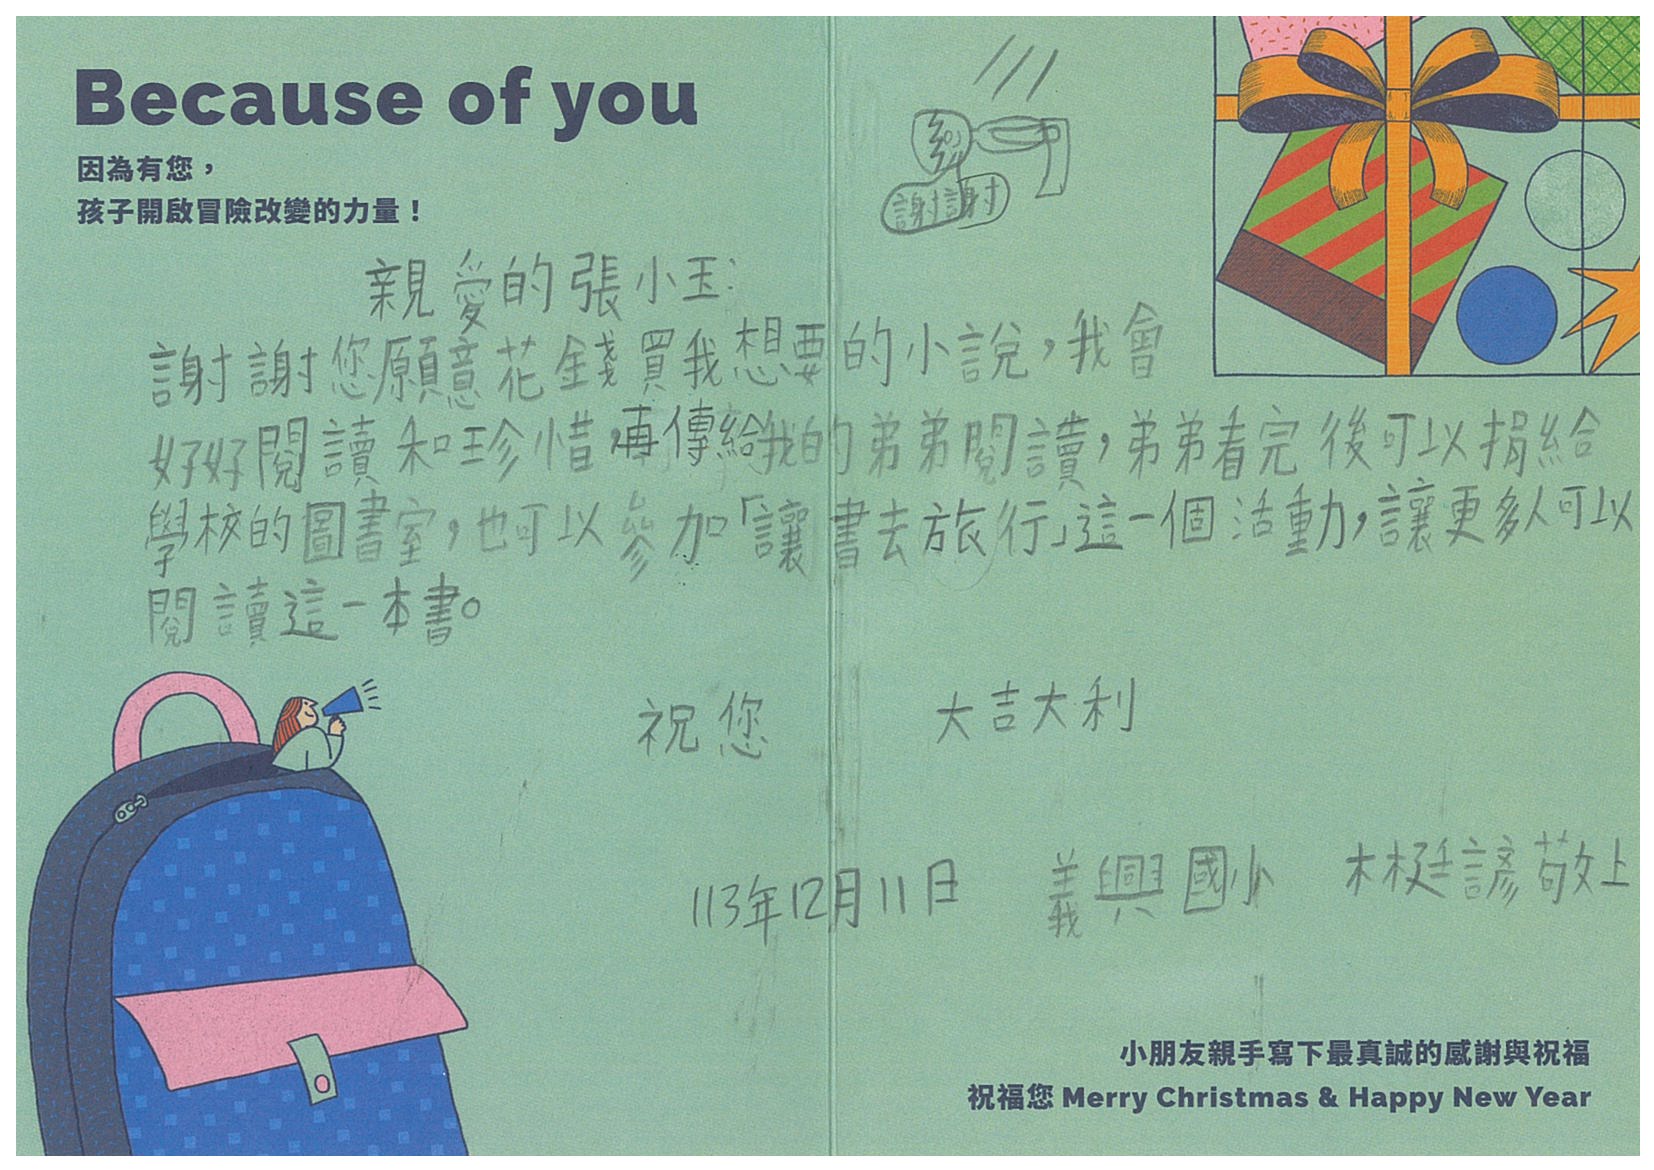 Because of you
因為有您，
孩子開啟冒險改變的力量！
謝謝
親愛的張小玉：
謝謝您願意花錢買我想要的小說，我會
好好閱讀和珍惜，再傳給我的弟弟閱讀，弟弟看完後可以捐給
學校的圖書室，也可以參加「讓書去旅行」這一個活動，讓更多人可以
閱讀這一本書。
祝您 大吉大利
113年12月11日 義興國小 林莛諺敬上
小朋友親手寫下最真誠的感謝與祝福
祝福您 Merry Christmas & Happy New Year